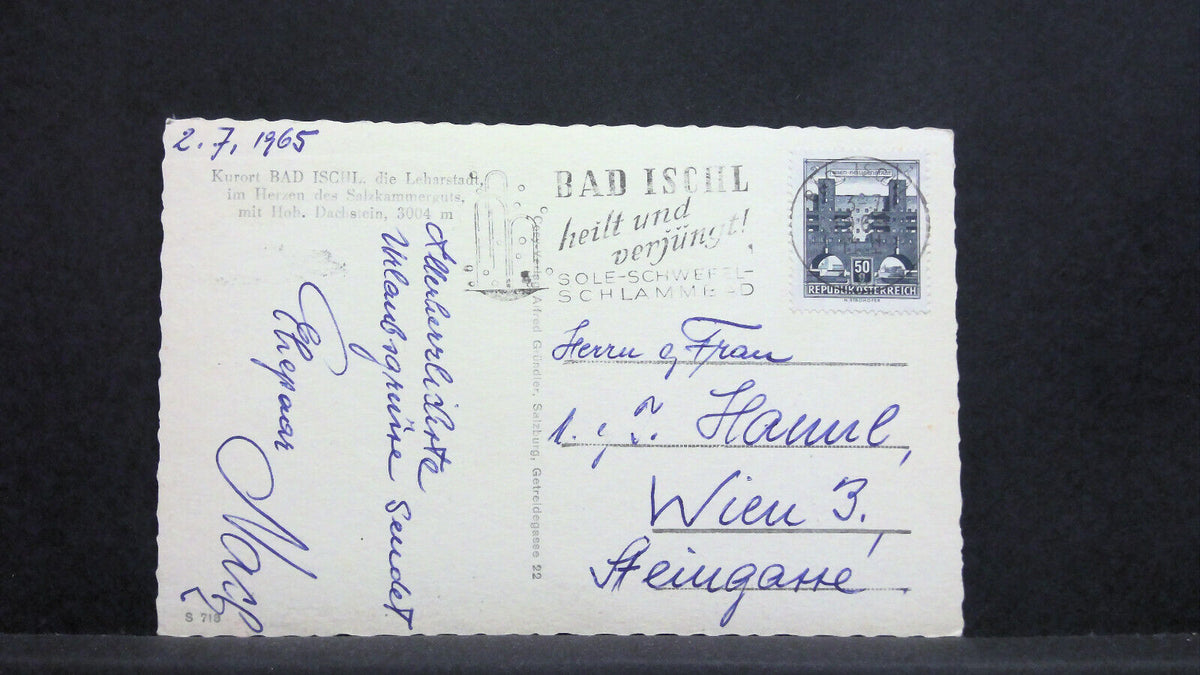 2. 7. 1965
Kurort BAD ISCHL. die Leharstadt,
im Herzen des Salzkammerguts,
mit Hoh. Dachstein, 3004 m
Allerherrlichste
Urlaubsgrüsse sendet
Ehepaar
S 718
Cosy-Verlag Alfred Gründler, Salzburg, Getreidegasse 22
BAD ISCHL
heilt und
verjüngt!
SOLE-SCHWEFEL-
SCHLAMMBAD
50
REPUBLIK ÖSTERREICH
Herrn u. Frau
Wien 3.
Steingasse